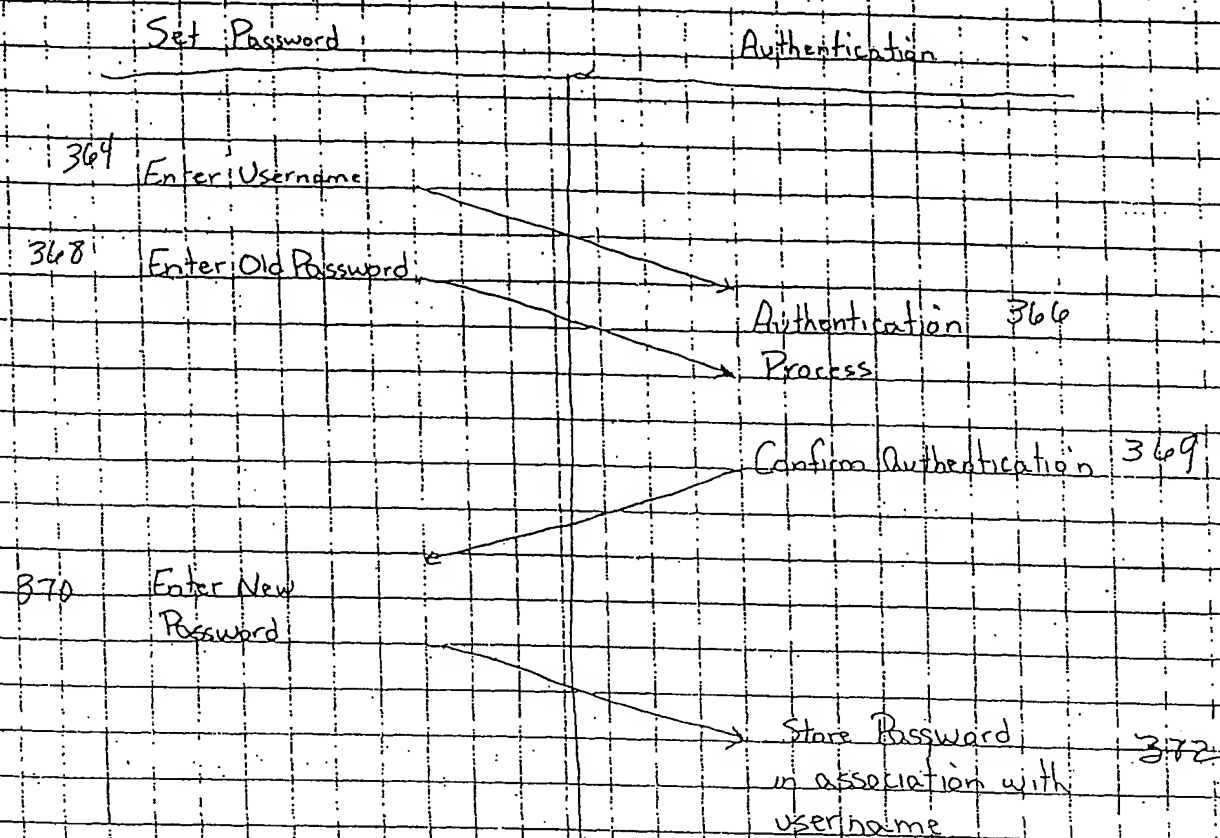 Set Password
Authentication
364 Enter Username
368 Enter Old Password
Authentication 366
Process
Confirm Authentication 369
370 Enter New
Password
Store Password 372
in association with
username